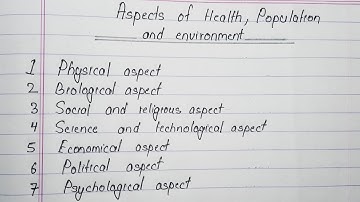 Aspects of Health, Population
and environment
1 Physical aspect
2 Biological aspect
3 Social and religious aspect
4 Science and technological aspect
5 Economical aspect
6 Political aspect
7 Psychological aspect